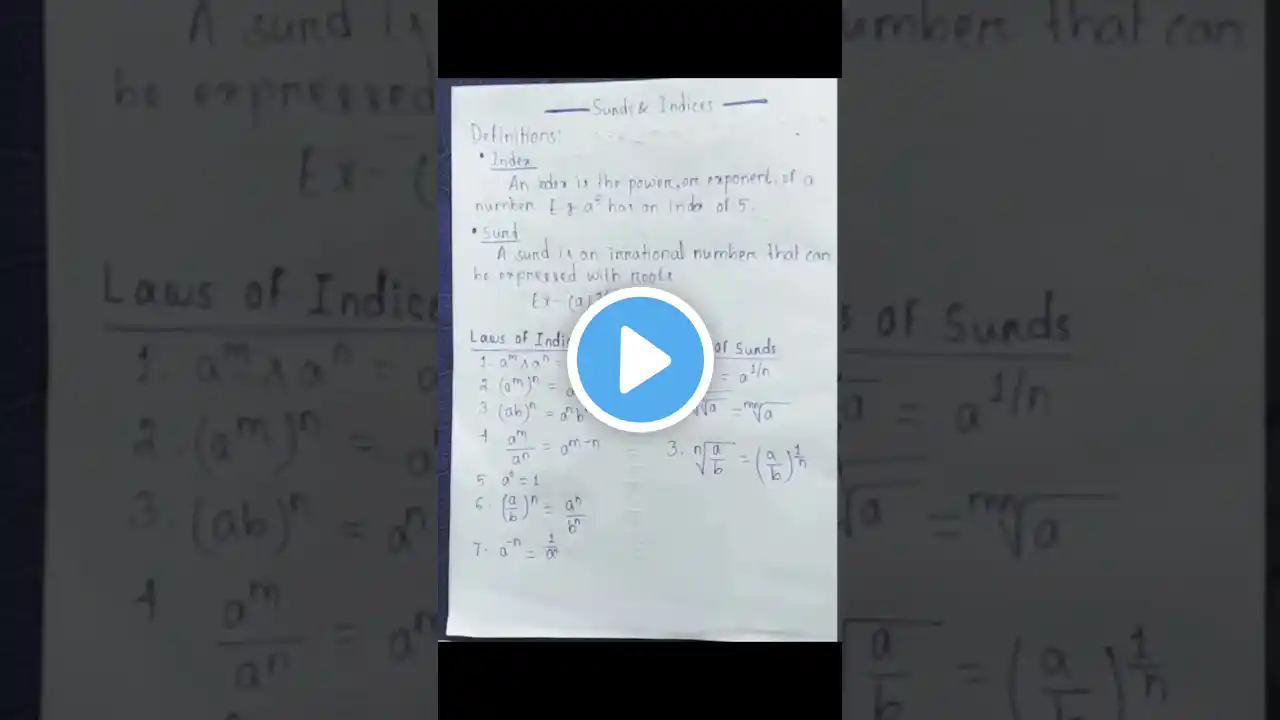 Surds & Indices
Definitions:
• Index
An index is the power, or exponent, of a
number. E.g a⁵ has an index of 5.
• Surd
A surd is an irrational number that can
be expressed with roots.
Ex- (a)
Laws of Indic
of Surds
1. aᵐ x aⁿ =
2. (aᵐ)ⁿ = a
3. (ab)ⁿ = aⁿb
4 aᵐ/aⁿ = aᵐ⁻ⁿ
5. a⁰ = 1
6. (a/b)ⁿ = aⁿ/bⁿ
7. a⁻ⁿ = 1/aⁿ
= a^1/n
√a = ᵐⁿ√a
3. ⁿ√a/b = (a/b)^1/n